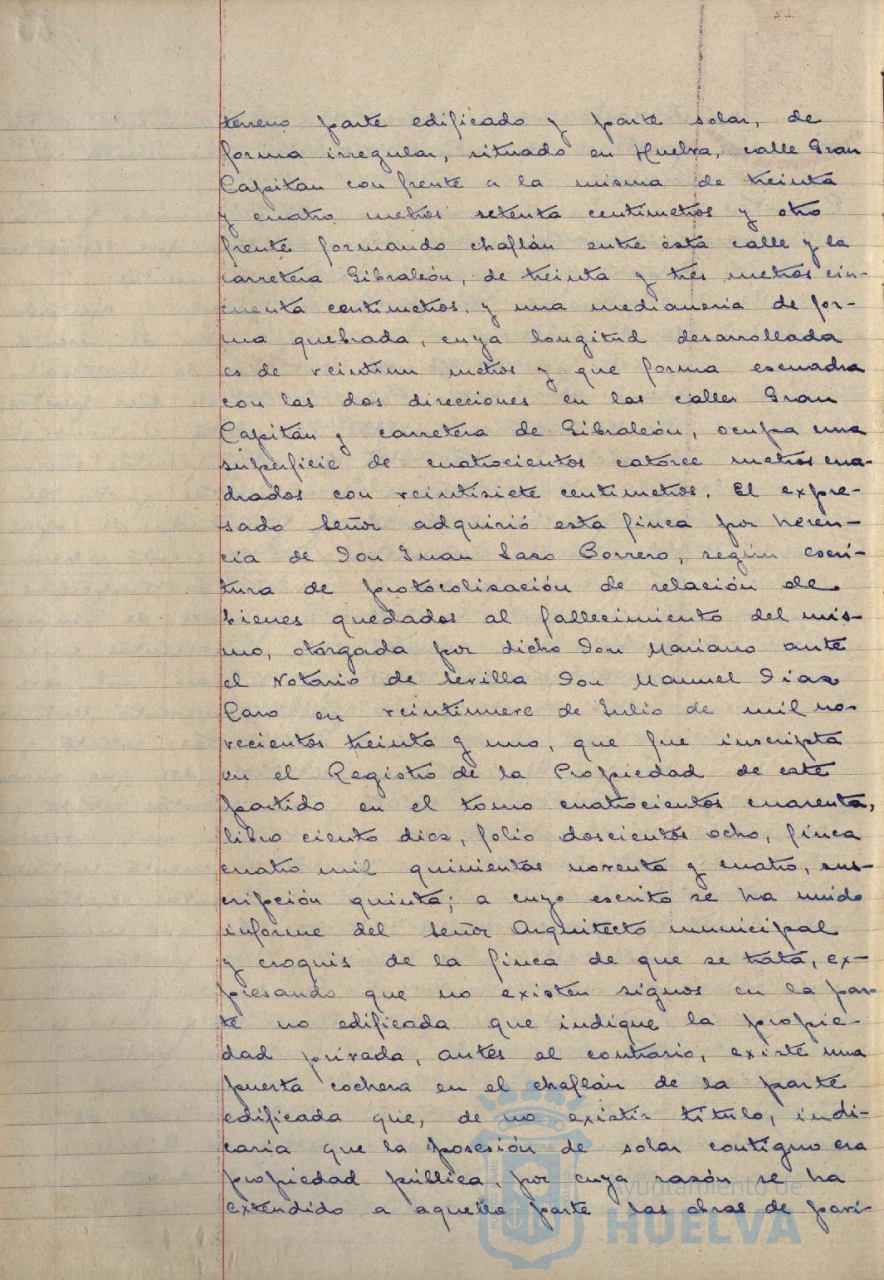 terreno parte edificado y parte solar, de
forma irregular, situado en Huelva, calle Gran
Capitan con frente a la misma de treinta
y cuatro metros setenta centimetros y otro
frente formando chaflán entre esta calle y la
carretera Gibraleón, de treinta y tres metros cin-
cuenta centimetros. y una medianeria de for-
ma quebrada, cuya longitud desarrollada
es de veintiun metros y que forma escuadra
con las dos direcciones en las calles Gran
Capitán y carretera de Gibraleón, ocupa una
superficie de cuatrocientos catorce metros cua-
drados con veintisiete centimetros. El expre-
sado Señor adquirió esta finca por heren-
cia de Don Juan Saso Borrero, según escri-
tura de protocolisación de relación de
bienes quedados al fallecimiento del mis-
mo, otorgada por dicho Don Mariano ante
el Notario de Sevilla Don Manuel Dias
Caro en veintinueve de Julio de mil no-
vecientos treinta y uno, que fue inscripta
en el Registro de la Propiedad de este
partido en el tomo cuatrocientos cuarenta,
libro ciento diez, folio doscientos ocho, finca
cuatro mil quinientos noventa y cuatro, sus-
cripción quinta; a cuyo escrito se ha unido
informe del Señor Arquitecto municipal
y croquis de la finca de que se trata, ex-
presando que no existen signos en la par-
te no edificada que indique la propie-
dad privada, antes al contrario, existe una
puerta cochera en el chaflán de la parte
edificada que, de no existir titulo, indi-
caria que la posesión de solar contiguo era
propiedad pública, por cuya rasón se ha
extendido a aquella parte las obras de pavi-
Ayuntamiento de
HUELVA